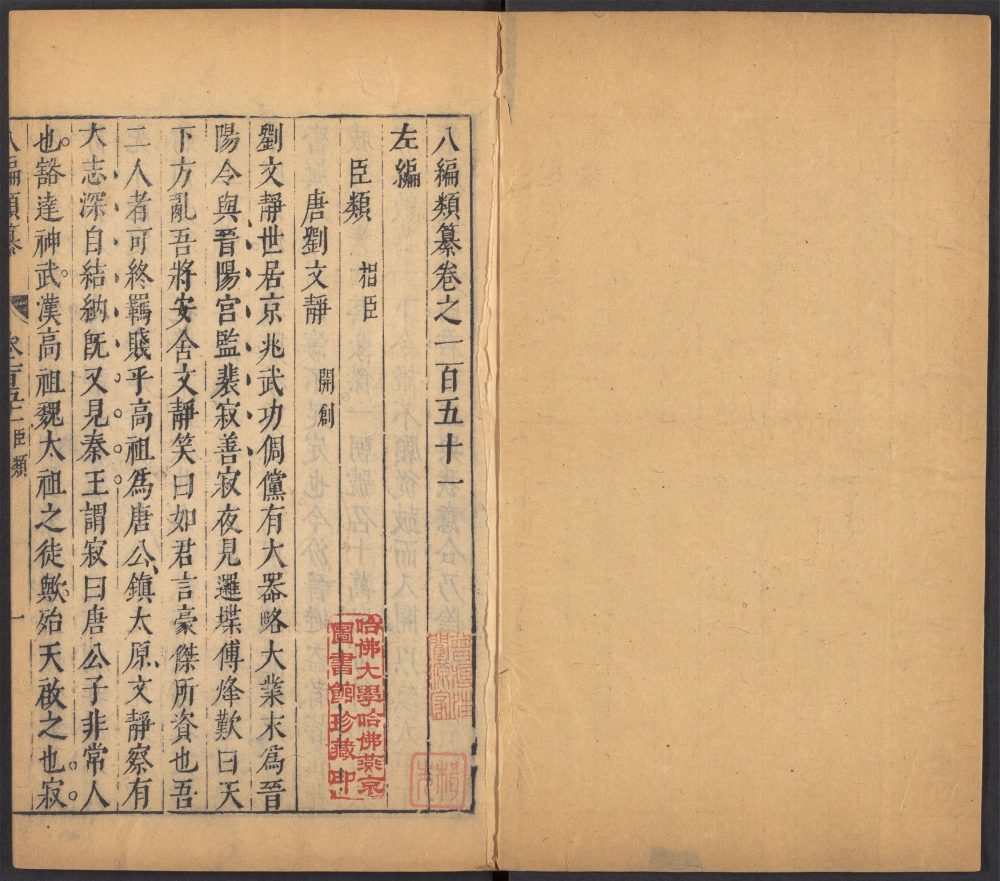 八編類纂卷之一百五十一
左編
臣類 相臣
唐劉文靜 開創
劉文靜世居京兆武功倜儻有大器略大業末爲晉
陽令與晉陽宫監裴寂善寂夜見邏堞傅烽歎曰天
下方亂吾將安舍文靜笑曰如君言豪傑所資也吾
二人者可終羈賤乎高祖爲唐公鎮太原文靜察有
大志深自結納旣又見秦王謂寂曰唐公子非常人
也豁達神武漢高祖魏太祖之徒歟殆天啟之也寂
八編類纂 臣類 一
哈佛大學哈佛燕京
圖書館珍藏印